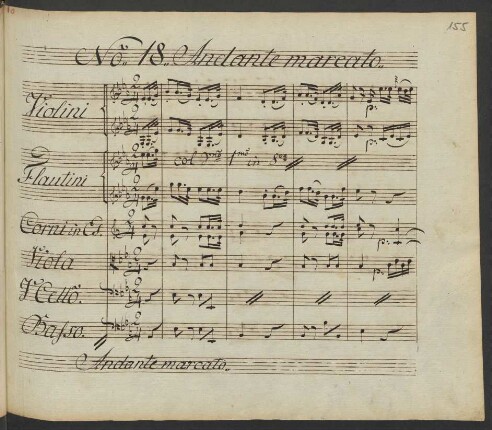 155
No. 18. Andante marcato.
Violini
p:
Flautini
col Vno 1mo in 8va
Corni in Es.
p:
Viola
p:
Vcello.
Basso.
Andante marcato.